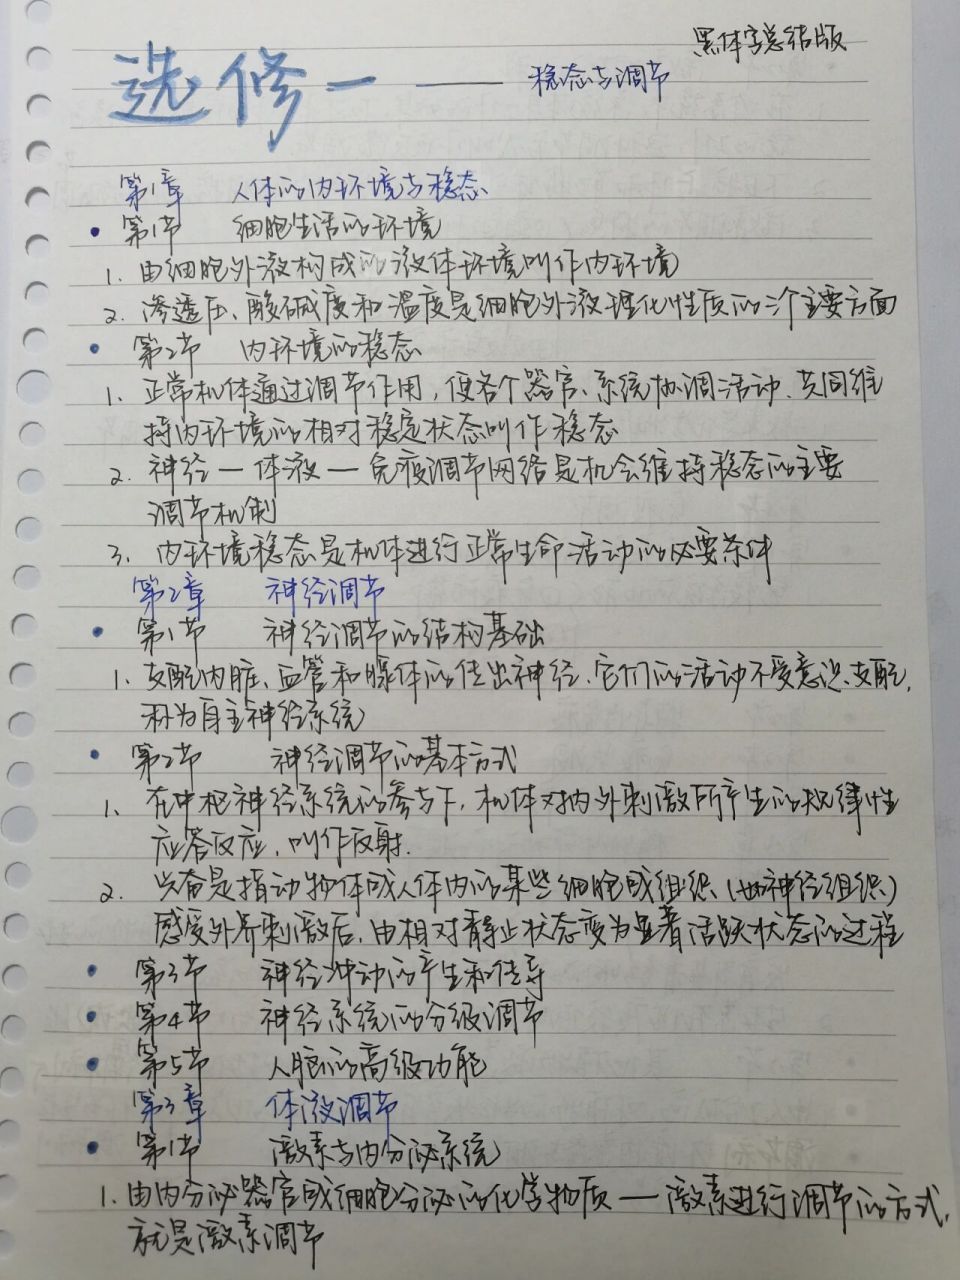 黑体字总结版
选修一 —— 稳态与调节
第1章 人体的内环境与稳态
• 第1节 细胞生活的环境
1. 由细胞外液构成的液体环境叫作内环境
2. 渗透压、酸碱度和温度是细胞外液理化性质的三个主要方面
• 第2节 内环境的稳态
1. 正常机体通过调节作用,使各个器官、系统协调活动、共同维
持内环境的相对稳定状态叫作稳态
2. 神经一体液一免疫调节网络是机会维持稳态的主要
调节机制
3. 内环境稳态是机体进行正常生命活动的必要条件
第2章 神经调节
• 第1节 神经调节的结构基础
1. 支配内脏、血管和腺体的传出神经、它们的活动不受意识支配,
称为自主神经系统
• 第2节 神经调节的基本方式
1. 在中枢神经系统的参与下,机体对内外刺激所产生的规律性
应答反应,叫作反射.
2. 兴奋是指动物体或人体内的某些细胞或组织(如神经组织)
感受外界刺激后,由相对静止状态变为显著活跃状态的过程
• 第3节 神经冲动的产生和传导
• 第4节 神经系统的分级调节
• 第5节 人脑的高级功能
第3章 体液调节
• 第1节 激素与内分泌系统
1. 由内分泌器官或细胞分泌的化学物质 — 激素进行调节的方式,
就是激素调节